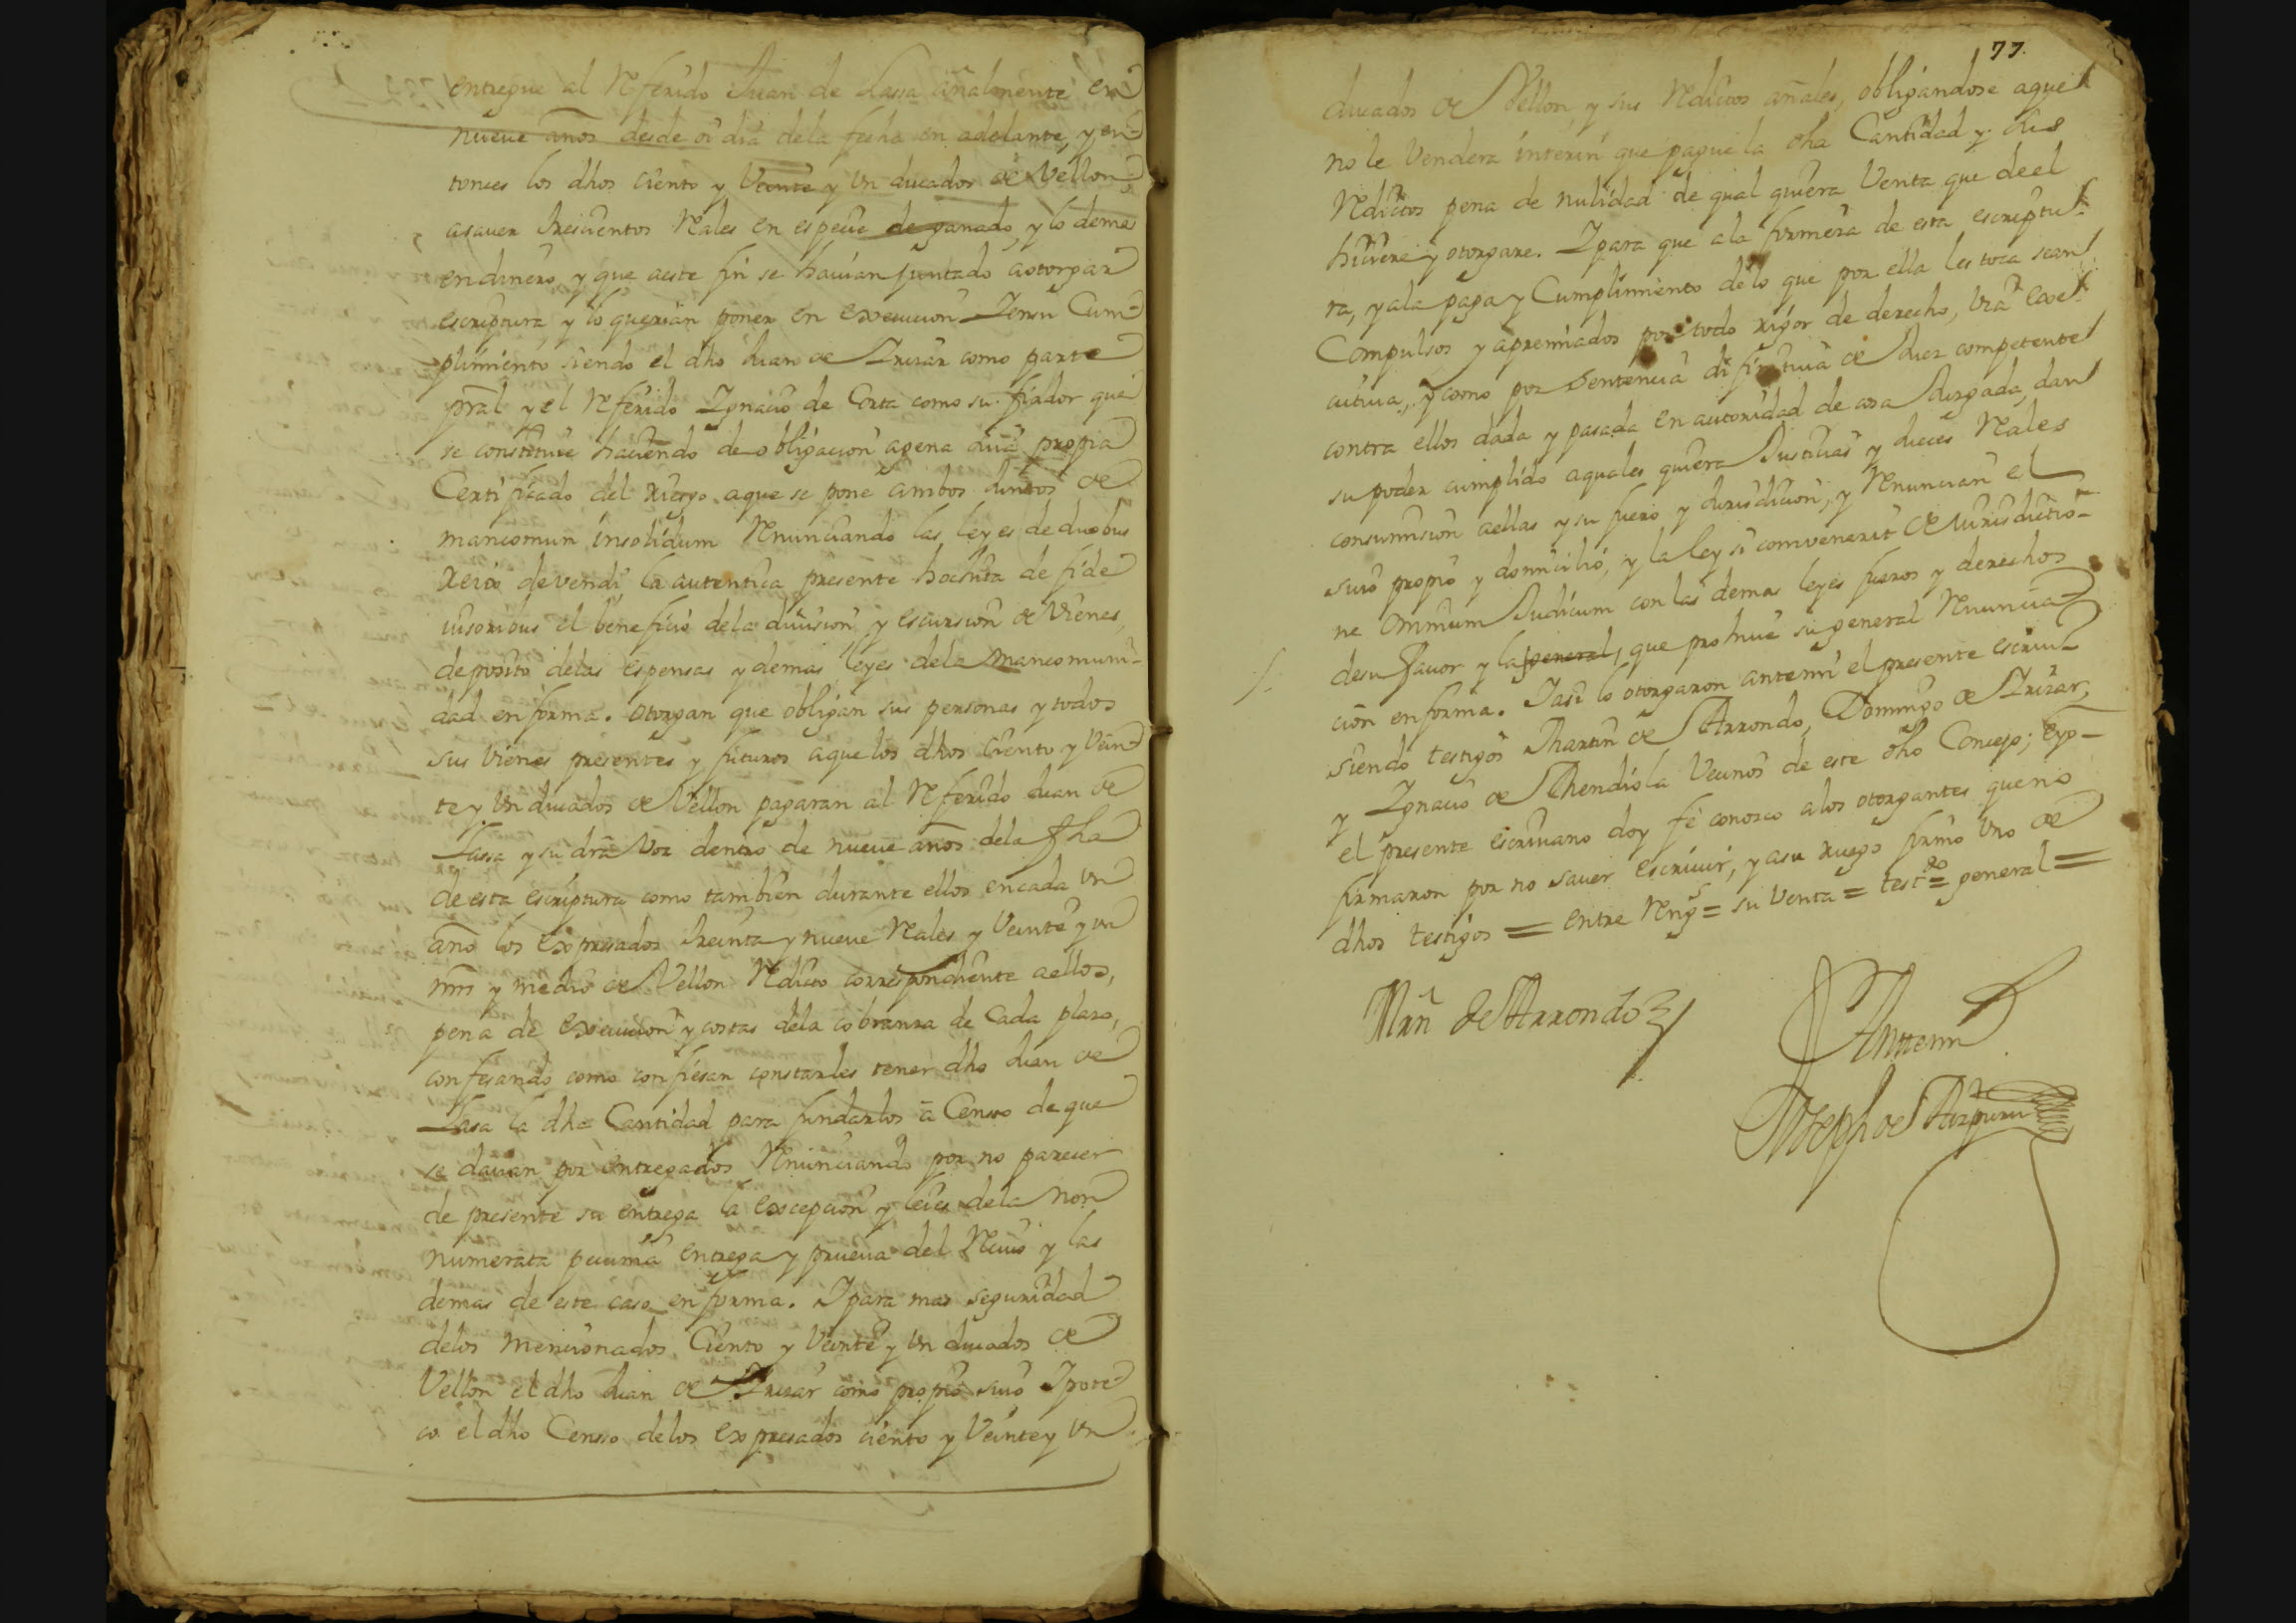 entregue al Referido Juan de Lassa añalmente en
nueve años desde oi dia dela fecha en adelante, y en-
tonces los dhos ciento y Veinte y Un ducados de Vellon
asaver trescientos Reales en especie de ganado, y lo demas
en dinero, y que aeste fin se havian juntado aotorgar
escriptura y lo querian poner en execucion Y en su Cum-
plimiento siendo el dho Juan de Yrizar como parte
pral y el Referido Ygnacio de Corta como su fiador que
se constituie haciendo de obligacion agena suia propia
Certificado del riesgo aque se pone ambos Juntos de
mancomun insolidum Renunciando las leyes de duobus
reix devendi, la autentica presente hochita de fide
iusoribus el beneficio dela division y escursion de Vienes,
deposito delas espensas y demas leyes dela Mancomuni-
dad en forma. otorgan que obligan sus personas y todos
sus vienes presentes y futuros aque los dhos Ciento y Vein-
te y Un ducados de Vellon pagaran al Referido Juan de
Lassa y su dra Voz dentro de nueve años dela fha
de esta escriptura como tambien durante ellos encada Un
año los Expresados treinta y nueve Reales y Veinte y un
mrs y medio de Vellon Redicto correspondiente aellos,
pena de Execucion y costas dela cobranza de Cada plazo,
confesando como confiesan constarles tener dho Juan de
Lasa la dha Cantidad para fundarlos a Censo de que
se davan por entregados Renunciando por no parecer
de presente su entrega la Excepcion y leies dela non
numerata pecunia entrega y prueva del Recivo y las
demas de este caso en forma. Y para mas seguridad
delos mencionados Ciento y Veinte y Un ducados de
Vellon el dho Juan de Yrizar como propio suio Ypote-
co el dho Censo delos Expresados ciento y Veinte y Un
77.
ducados de Vellon, y sus Redictos añales, obligandose aque
no le Vendera interin que pague la dha Cantidad y sus
Redictos pena de nulidad de qual quiera Venta que de el
hiciere y otorgare. Y para que ala firmeza de esta escriptu-
ra, y ala paga y Cumplimiento de lo que por ella les toca sean
Compulsos y apremiados por todo rigor de derecho, Via Exe-
cutiva, y como por Sentencia difinitiva de Juez competente
contra ellos dada y pasada en autoridad de cosa Juzgada, dan
su poder cumplido aquales quiera Justicias y Jueces Reales
consumision aellas y su fuero y Jurisdicion, y Renuncian el
suio propio y domicilio, y la ley si comvenerit de Jurisdictio-
ne Omnium Judicum con las demas leyes fueros y derechos
desu favor y la general, que prohive su general Renuncia-
cion en forma. Y asi lo otorgaron antemi el presente escriv-
siendo testigos Martin de Arrondo, Domingo de Yrizar,
y Ygnacio de Mendiola Vecinos de este dho Concejo; Eyo-
el presente escrivano doy fe conosco alos otorgantes que no
firmaron por no saver escrivir, y asu ruego firmo Uno de
dhos testigos = entre Rengs = su Venta = testdo = general =
Mrn de Arrondo
Antemi
Joseph de Aizpuru